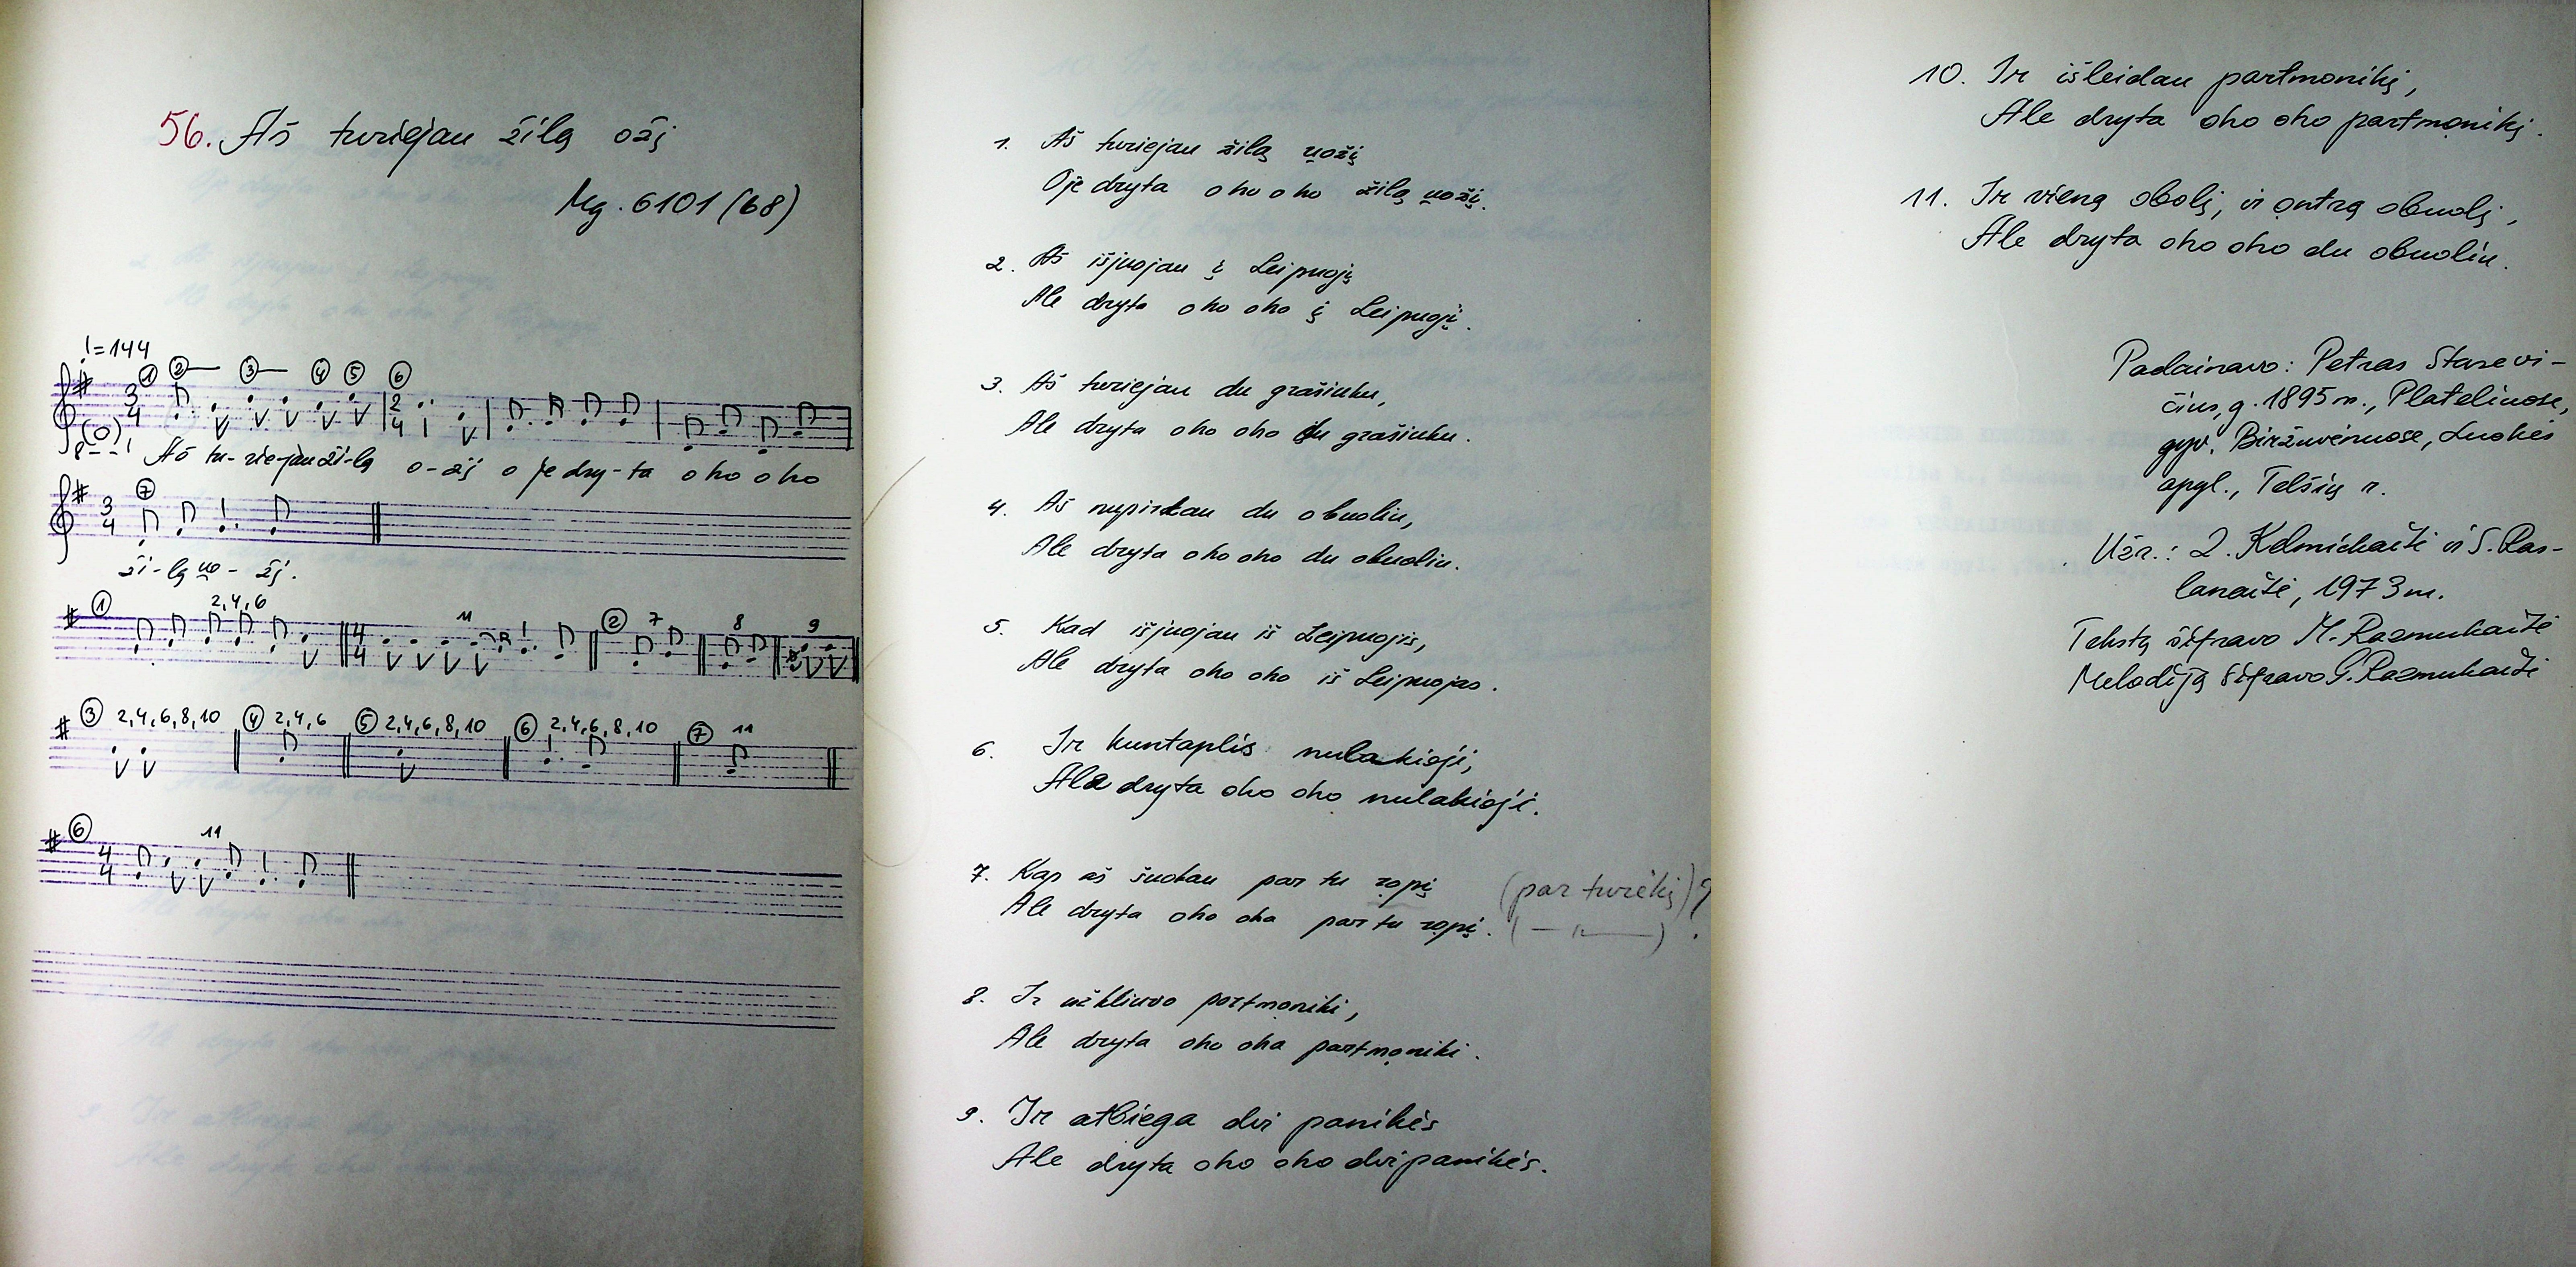 56. Aš turiejau žilą ožį
Mg. 6101 (68)
♩=144
① ② ③ ④ ⑤ ⑥
3/4 2/4
(0)
8
Aš tu-rie-jau ži-lą o-žį o je dry-ta oho oho
⑦
3/4
ži-lą uo-žį.
① 2,4,6 11 ② 7 8 9
4/4
③ 2,4,6,8,10 ④ 2,4,6 ⑤ 2,4,6,8,10 ⑥ 2,4,6,8,10 ⑦ 11
⑥ 11
4/4
1. Aš turiejau žilą uožį
Oje dryta oho oho žilą uožį.
2. Aš išjuojau į Leipuoją
Ale dryta oho oho į Leipuoją.
3. Aš turiejau du grašiuku,
Ale dryta oho oho du grašiuku.
4. Aš nupirkau du obuoliu,
Ale dryta oho oho du obuoliu.
5. Kad išjuojau iš Leipuojis,
Ale dryta oho oho iš Leipuojas.
6. Ir kuntaplis nulakioji,
Ale dryta oho oho nulakioji.
7. Kap aš šuokau par tu ropį (par tvorėkį)?
Ale dryta oho oha par tu ropį. ( — " — ) .
8. Ir užkliuvo partmoniki,
Ale dryta oho oha partmoniki.
9. Ir atbiega dvi panikės
Ale dryta oho oho dvi panikės.
10. Ir išleidau partmonikį,
Ale dryta oho oho partmonikį.
11. Ir vieną obolį, ir ontrą obuolį,
Ale dryta oho oho du obuoliu.
Padainavo: Petras Stasevi-
čius, g. 1895 m., Plateliuose,
gyv. Biržuvėnuose, Luokės
apyl., Telšių r.
Užr.: Z. Kelmickaitė ir S. Pas-
lanaitė, 1973 m.
Tekstą šifravo M. Razmukaitė
Melodiją šifravo G. Razmukaitė